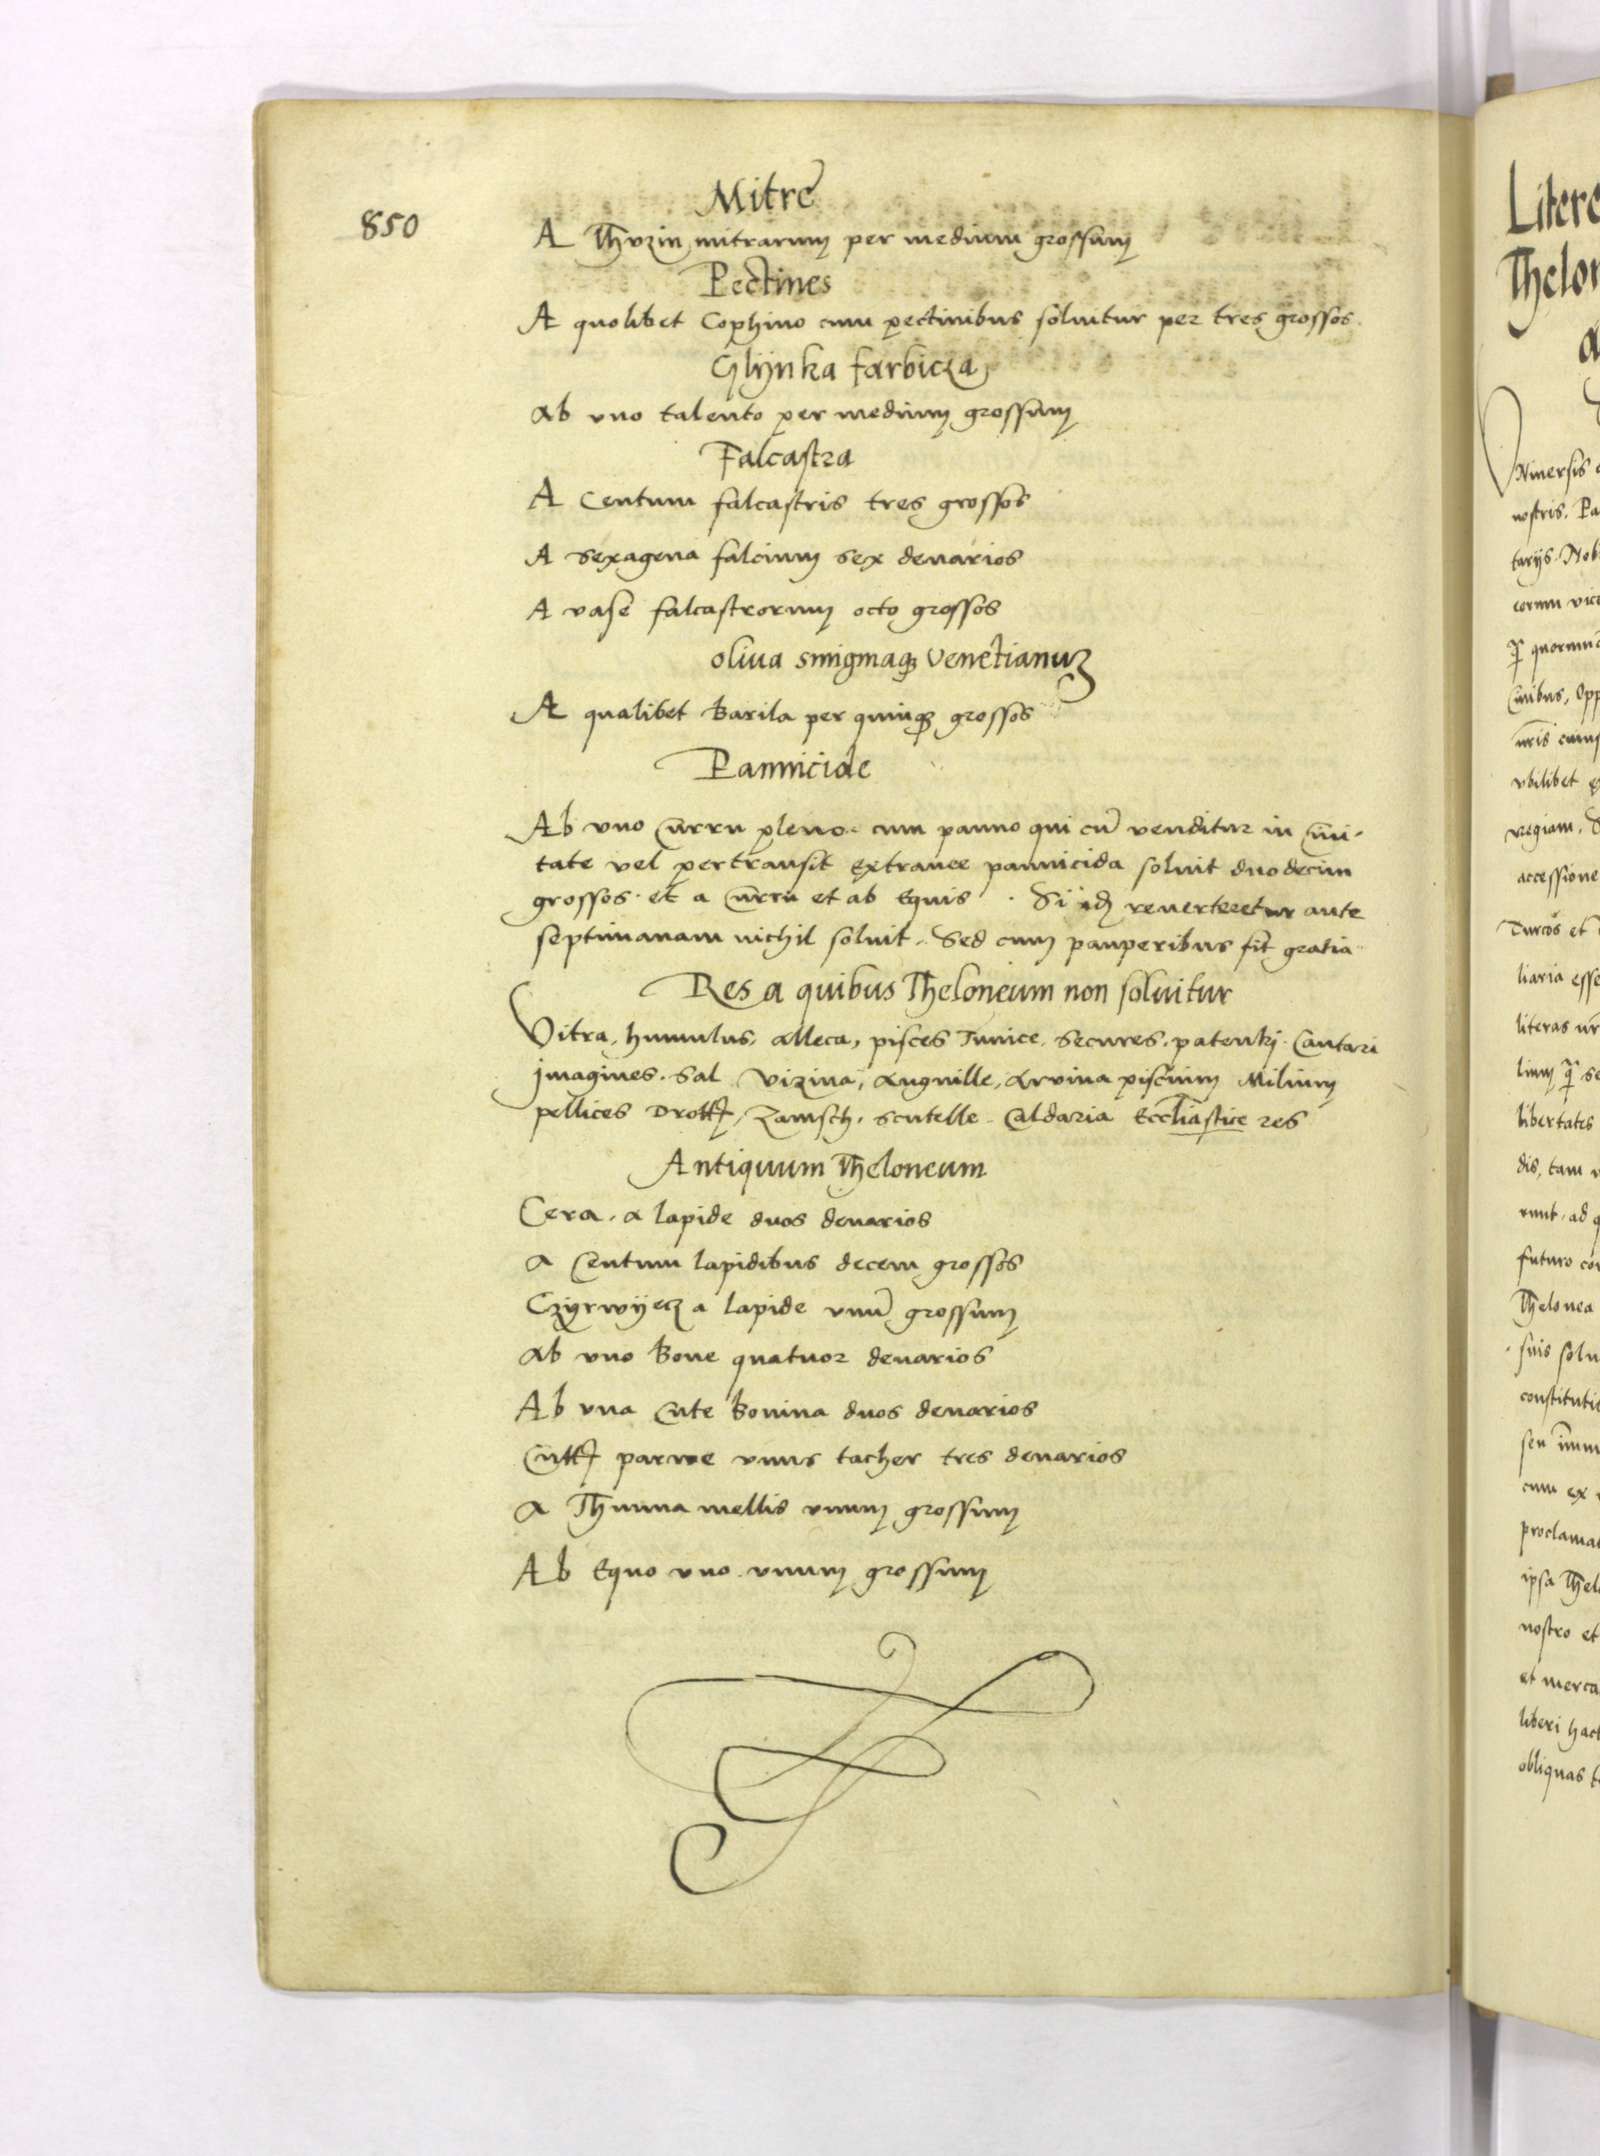 850
Mitre
A Thuzin mitrarum per medium grossum
Pectines
A quolibet Cophino cum pectinibus soluitur per tres grossos.
Glijnka farbicza
Ab vno talento per medium grossum
Falcastra
A Centum falcastris tres grossos
A sexagena falcium sex denarios
A vase falcastrorum octo grossos
oliua smigmaq3 Venetianu3
A qualibet Barila per quinq3 grossos
Pannicide
Ab vno Curru pleno cum panno qui cu venditur in Ciui-
tate vel pertransit extranee pannicida soluit duodecim
grossos. et a Curru et ab Equis. Si reuerteretur ante
septimanam nichil soluit. Sed cum pauperibus fit gratia
Res a quibus Theloneum non soluitur
Vitra, humulus, alleca, pisces Tunice, secures, patenkj. Cantari
jmagines. Sal Vizina, Anguille, Aruina piscium Milium
pellices Zamsch, scutelle. Caldaria Eccliastice res
Antiquum Theloneum
Cera. a lapide duos denarios
a Centum lapidibus decem grossos
Czyrwijecz a lapide vnu grossum
Ab vno Boue quatuor denarios
Ab vna Cute Bouina duos denarios
parwe vnus tacher tres denarios
a Thunna mellis vnum grossum
Ab Equo vno vnum grossum
Litere
Thelon
Vniuersis
nostris. Pa
tarijs. Nob
corum vice
quorum
Ciuibus, Opp
nris cuius
vbilibet
regiam.
accessione
Turcos et
liaria esse
literas nr
libertates
dis, tam
runt. ad q
futuro con
Thelonea
suis solu
constituti
seu
cum ex
proclamat
ipsa Thel
nostro et
et merca
liberi hact
obliquas